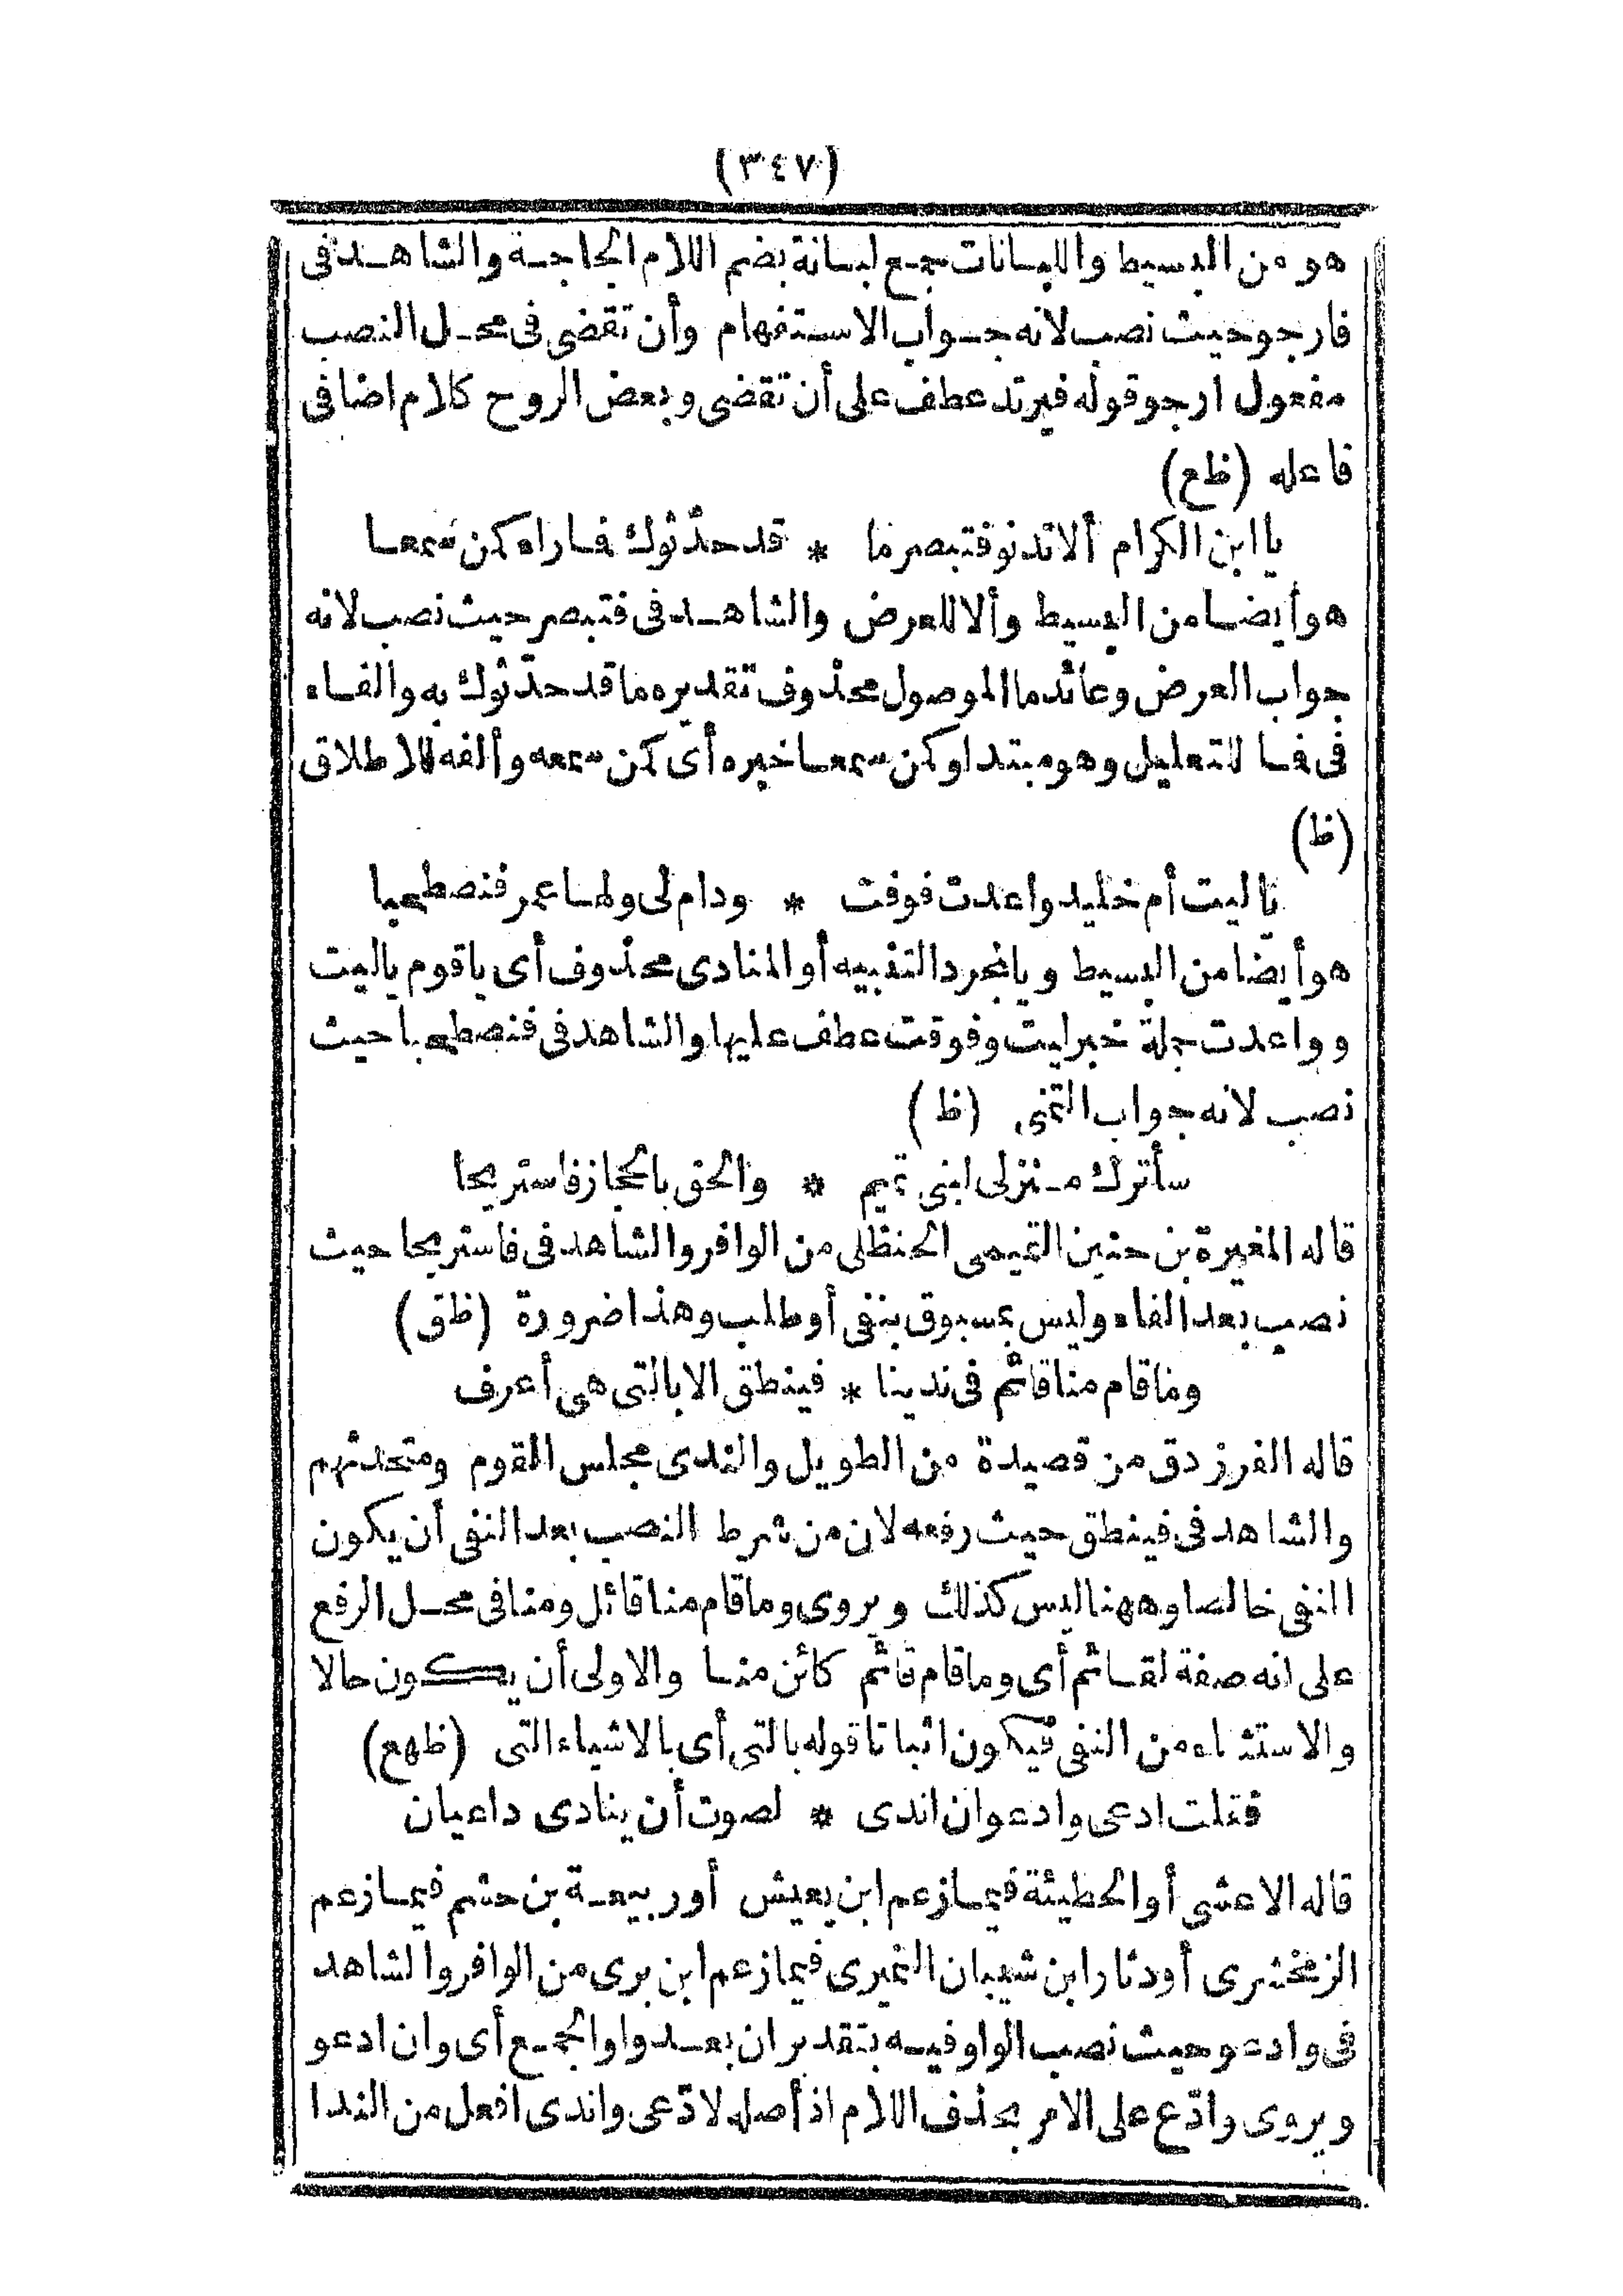 (٣٤٧)
هو من البسيط واللبانات جمع لبانة بضم اللام الحاجة والشاهد فى
فارجو حيث نصب لانه جواب الاستفهام وأن تقضى فى محل النصب
مفعول ارجو قوله فيرتد عطف على أن تقضى وبعض الروح كلام اضافى
فاعله (ظع)
يا ابن الكرام ألا تدنو فتبصر ما * قد حدّثوك فما راء كمن سمعا
هو أيضا من البسيط وألا للعرض والشاهد فى فتبصر حيث نصب لانه
جواب العرض وعائد ما الموصول محذوف تقديره ما قد حدّثوك به والفاء
فى فما للتعليل وهو مبتدا وكمن سمعا خبره أى كمن سمعه وألفه للاطلاق
(ظ)
يا ليت أم خليد واعدت فوفت * ودام لى ولها عمر فنصطحبا
هو أيضا من البسيط ويا لمجرد التنبيه أو المنادى محذوف أى يا قوم يا ليت
وواعدت جملة خبر ليت وفوقت عطف عليها والشاهد فى فنصطحبا حيث
نصب لانه جواب التمنى (ظ)
سأترك منزلى لبنى تميم * والحق بالحجاز فاستريحا
قاله المغيرة بن حنين التميمى الحنظلى من الوافر والشاهد فى فاستريحا حيث
نصب بعد الفاء وليس بمسبوق بنفى أو طلب وهذا ضرورة (ظق)
وما قام منا قائم فى ندينا * فينطق الا بالتى هى أعرف
قاله الفرزدق من قصيدة من الطويل والندى مجلس القوم ومتحدثهم
والشاهد فى فينطق حيث رفعه لان من شرط النصب بعد النفى أن يكون
النفى خالصا وههنا ليس كذلك ويروى وما قام منا قائل ومنا فى محل الرفع
على انه صفة لقائم أى وما قام قائم كائن منا والاولى أن يكون حالا
والاستثناء من النفى فيكون اثباتا قوله بالتى أى بالاشياء التى (ظهع)
فقلت ادعى وادعو ان اندى * لصوت أن ينادى داعيان
قاله الاعشى أو الحطيئة فيما زعم ابن يعيش أو ربيعة بن حشم فيما زعم
الزمخشرى أو دثار ابن شيبان النميرى فيما زعم ابن برى من الوافر والشاهد
فى وادعو حيث نصب الواو فيه بتقدير ان بعد واو الجمع أى وان ادعو
ويروى وادّع على الامر بحذف اللام اذ أصله لادّعى واندى افعل من الندا